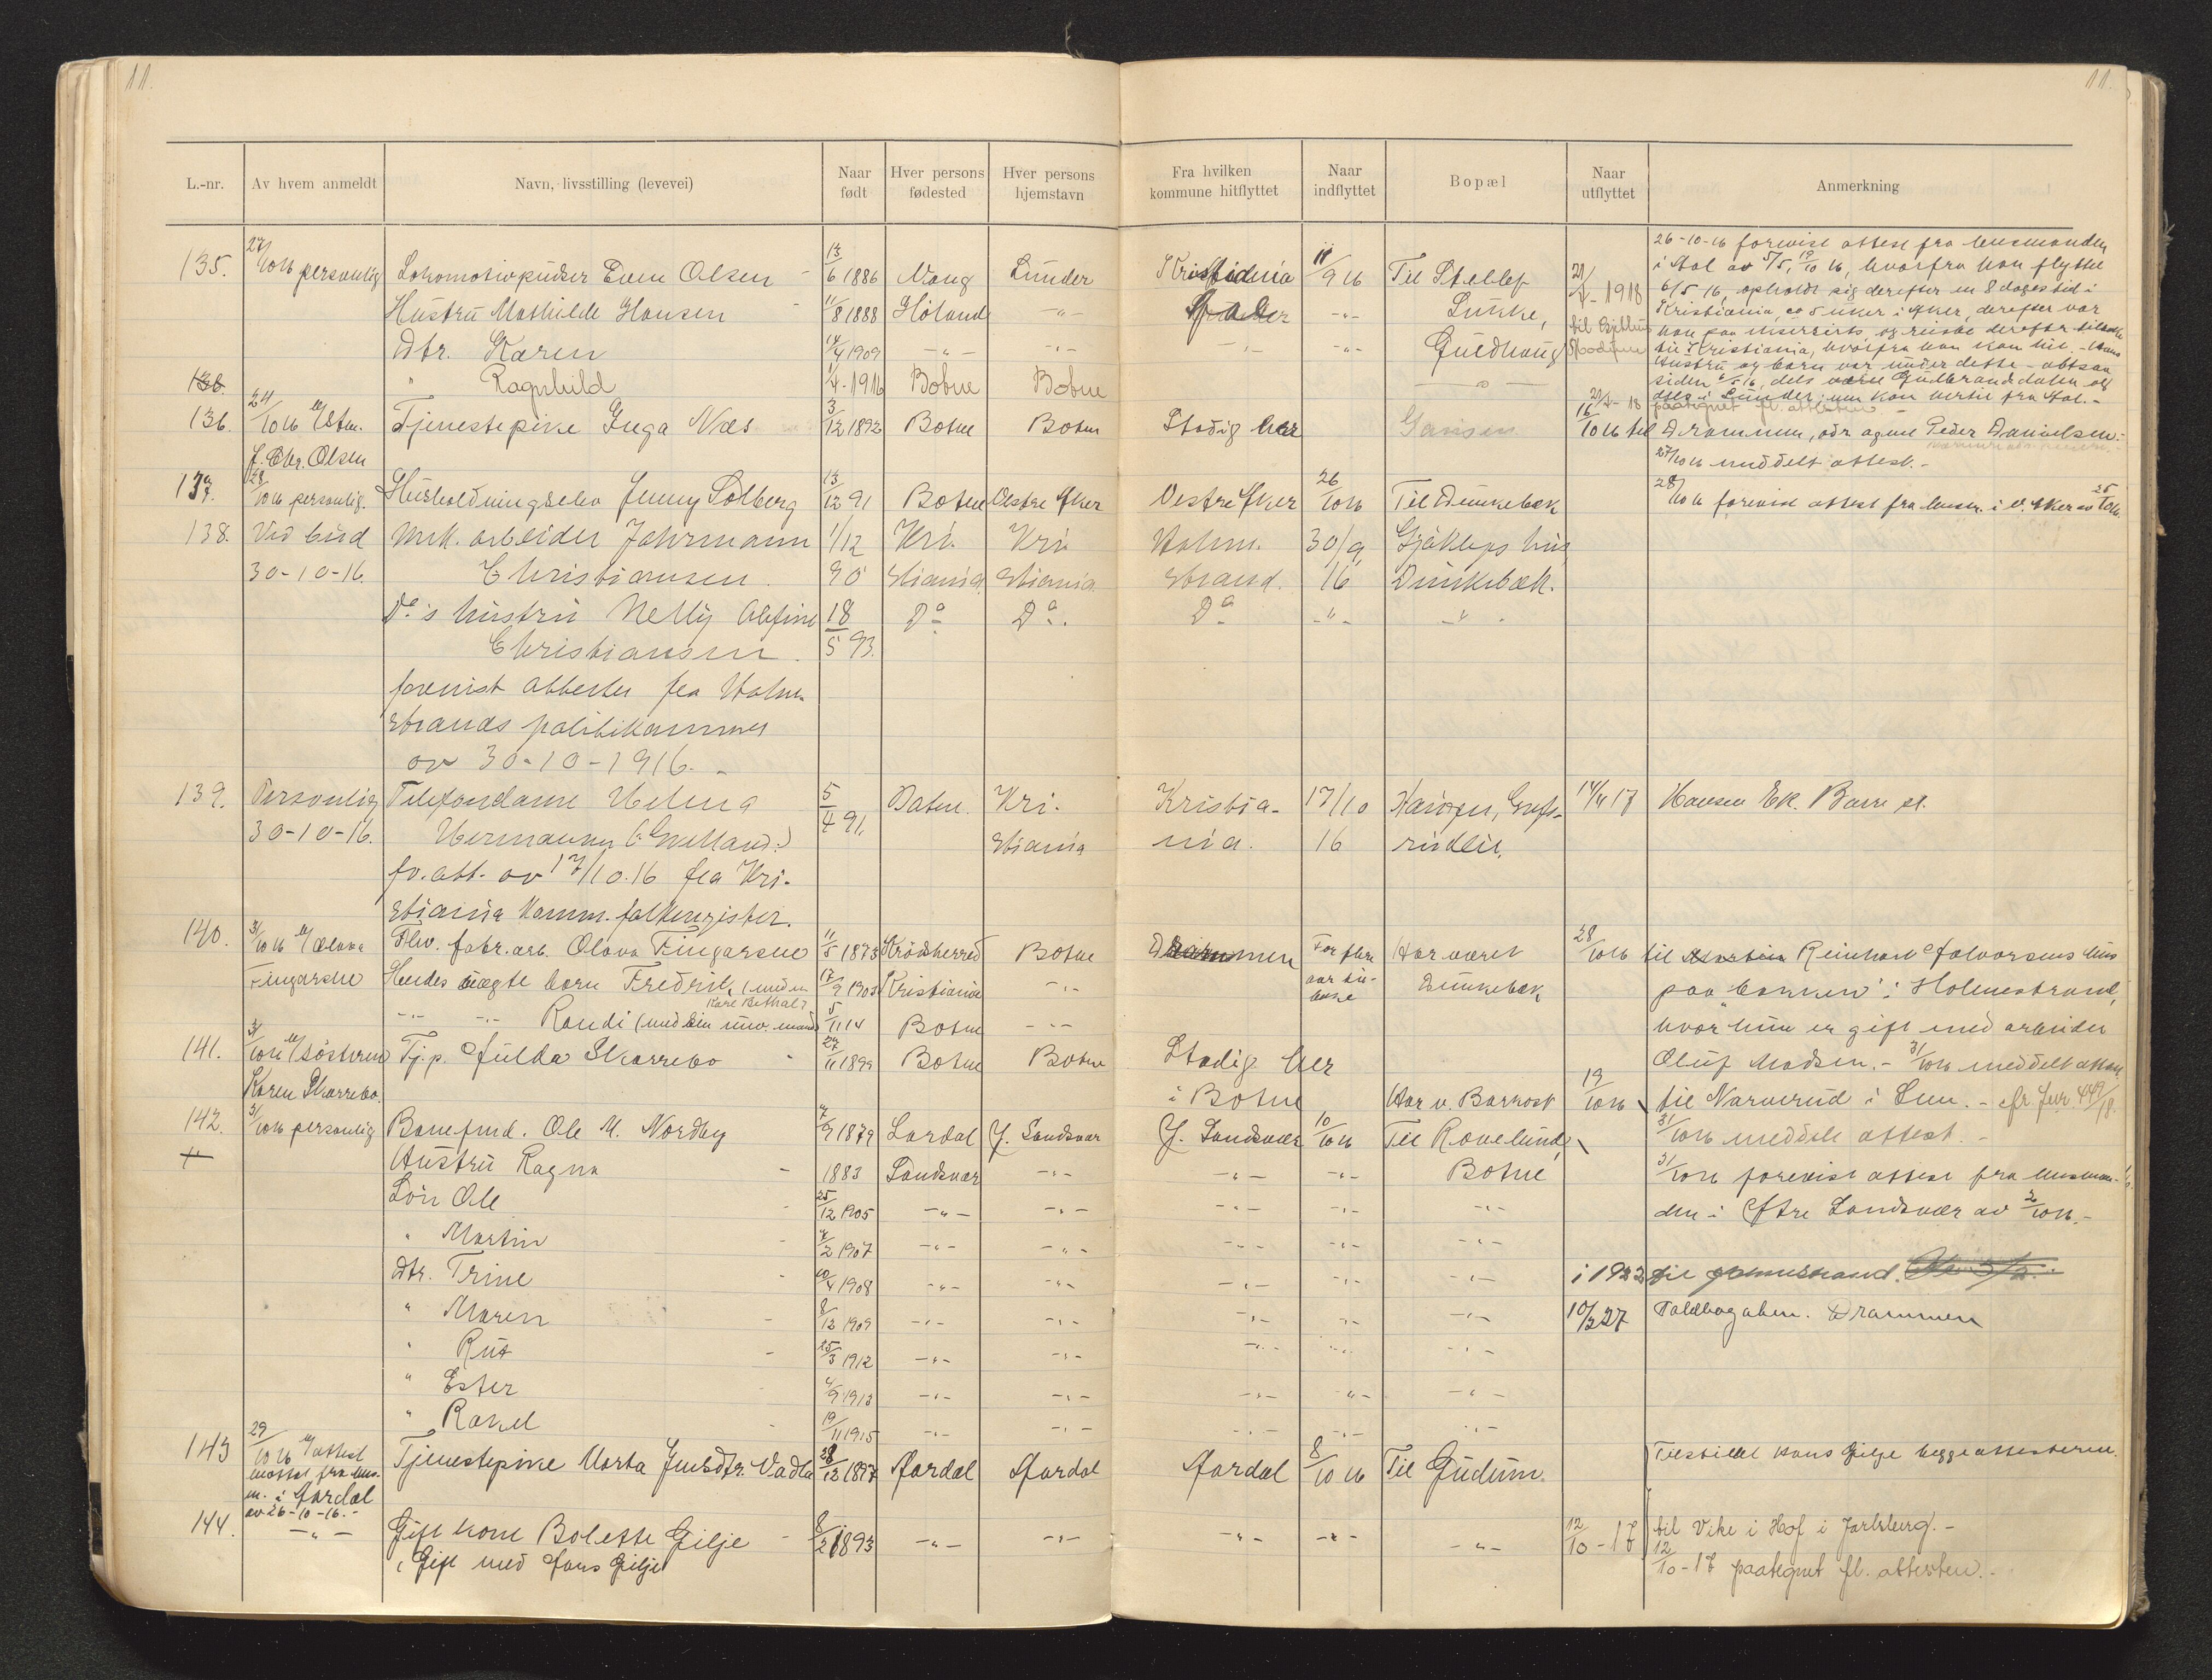 11.
11.
L.-nr. Av hvem anmeldt Navn, livsstilling (levevei) Naar født Hver persons fødested Hver persons hjemstavn Fra hvilken kommune hitflyttet Naar indflyttet Bopæl Naar utflyttet Anmerkning
135. 27/10 16 personlig Lokomotivpudser Even Olsen 13/6 1886 Lunder Kristiania 11/9 16 Til 21/4-1918 26-10-16 forevist attest fra lensmanden
i Aal av 5/5, 19/10 16, hvorfra han flyttet
6/5 16, opholdt sig derefter en 8 dages tid i
Hustru Mathilde Hansen 11/8 1888 Høland -"- -"- Lunke, Kristiania, ca 5 uker i Aker, derefter var
Dtr. Karen 14/4 1909 -"- -"- -"- -"- Guldhaug
til Kristiania, hvorfra han kom hit. - Hans
" Ragnhild 1/4-1916 Botne Botne -"- hustru og barn var under dette
siden 6/5 16, dels Gudbrandsdalen og
dels i Lunder; nu kom hertil fra Aal.-
136. 24/10 16 J. Chr. Olsen Tjenestepike Inga Næs 3/12 1892 Botne Botne Stadig her Gausen 16/10 16 til Drammen, adr agent Peder Danielsen.
27/10 16 meddelt attest.-
137. 28/10 16 personlig. Husholdningselev Jenny Solberg 13/12 91 Botne Vestre Aker Vestre Aker 26/10 16 Til Dunkebæk 28/10 16 forevist attest fra lensm. i V. Aker av 25/10 16.
138. Ved bud mek. arbeider Jahrmann 1/12 Kri- Kri- Holm- 30/9 Gjøkleps hus
30-10-16. Christiansen. 90 stiania stiania. strand. 16 Dunkebæk.
Do's hustru Nelly Alfine 18/5 93. Do Do. Do -"- -"-
Christiansen.
forevist attester fra Holm-
strands politikammer
av 30-10-1916.-
139. Personlig Telefondame Helma 5/4 91. Botne. Kri- Kristia- 17/10 Hansen, Grefs- 14/4 17 Hansen Ek. Borre st.
30-10-16. Hermansen stiania nia. 16 rudlir.
fv. att. av 17/10.16 fra Kri-
stiania komm. folkeregister.
140. 31/10 16 Olava Fingarsen Fhv. fabr.arb. Olava Fingarsen 11/5 1873 Krødsherred Botne Drammen For flere aar til- bake Har været Dunkebæk 28/10 16 til Reinhart Halvorsens hus
Hendes uægte barn Fredrik (med en Karl Bethal? 17/9 1903 Kristiania -"- paa "bakken" i Holmestrand,
-"- -"- Randi (med sin nuv. mand) 5/11 14 Botne -"- hvor hun er gift med arbeider
Oluf Madsen.- 31/10 16 meddelt attest
141. 31/10 16 søsteren Karen Skarrebo. Tj.p. Hulda Skarrebo 27/11 1899 Botne Botne Stadig her
i Botne Har v. Barkost 19/10 16 til Narverud i Lun.- cfr. Jur. 449/18.
31/10 16 meddelt attest.-
142. 31/10 16 personlig Banefmd. Ole M. Nordby 7/9 1879 Lardal Y. Sandsvær Y. Sandsvær 10/10 16 Til Rovelund,
Hustru Ragna 1883 Sandsvær -"- -"- -"- Botne 31/10 16 forevist attest fra lensman-
Søn Ole 25/12 1905 -"- -"- -"- -"- -"- den i Ytre Sandsvær av 2/10 16.-
" Martin 7/2 1907 -"- -"- -"- -"- -"-
Dtr. Trine 10/4 1908 -"- -"- -"- -"- -"- i 1922 til Holmestrand.
" Maren 8/12 1909 -"- -"- -"- -"- -"- 10/2 27 Toldbogaten. Drammen
" Rut 25/3 1912 -"- -"- -"- -"- -"-
" Ester 4/9 1913 -"- -"- -"- -"- -"-
" Rakel 19/11 1915 -"- -"- -"- -"- -"-
143 29/10 16 attest mottat fra lens- m. i Aardal av 26-10-16.- Tjenestepike Marta Jensdtr. Vadla 28/12 1897 Aardal Aardal Aardal 8/10 16 Til Gudum. Tilstillet Hans Gilje begge attesterne.
144. -"- Gift kone Bolette Gilje 8/2 1893 -"- -"- -"- -"- -"- 12/10-17 til Vike i Hof i Jarlsberg.-
Gift med Hans Gilje 12/10-17 paategnet fl. attesten.-